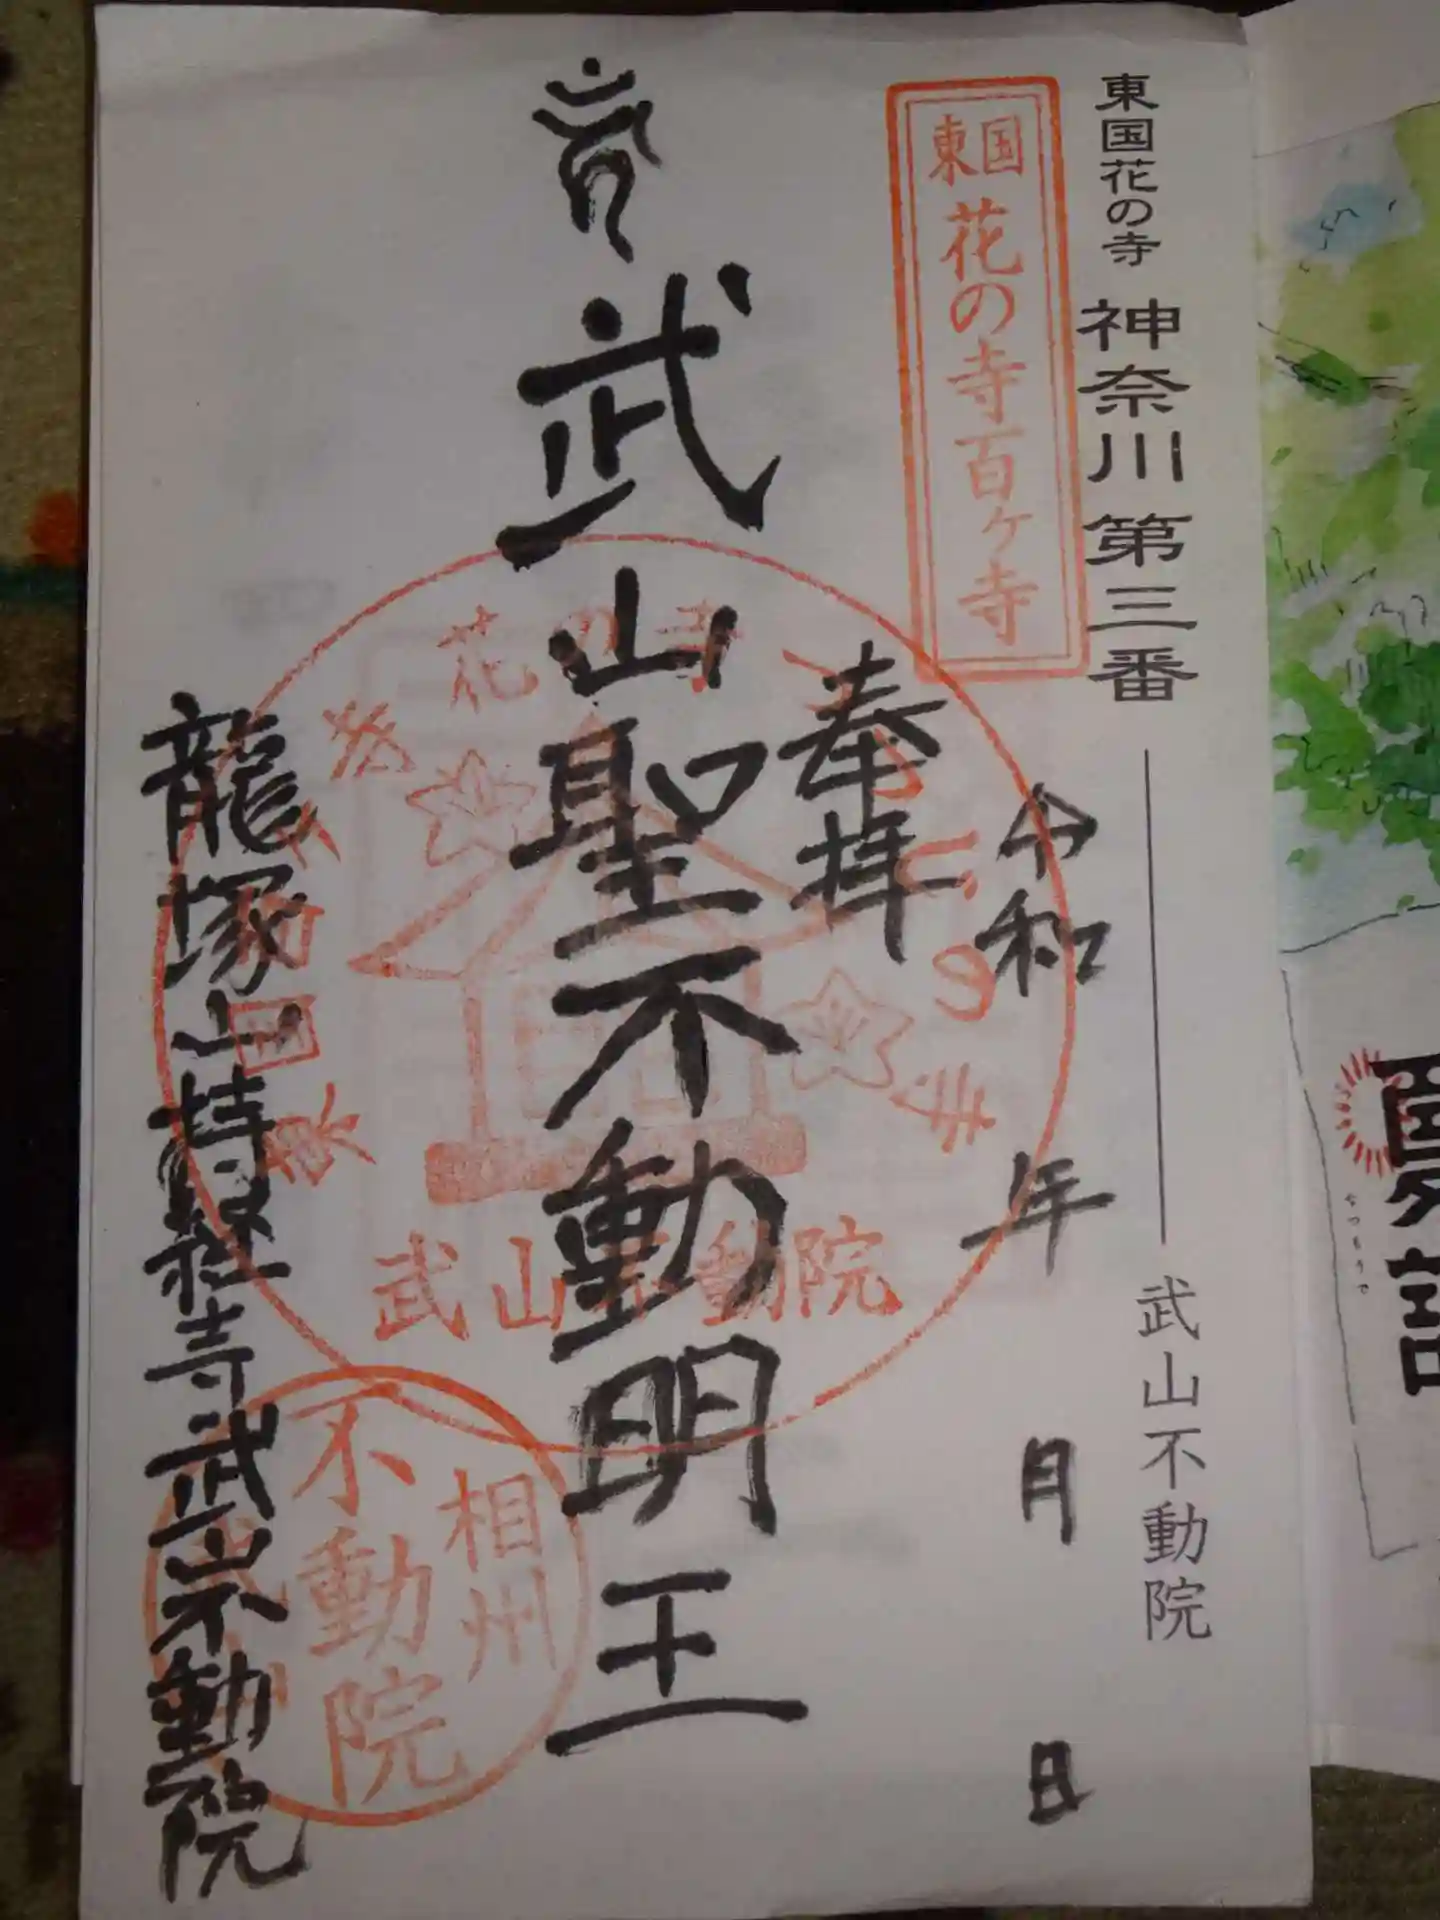 東国花の寺 神奈川第三番 武山不動院
東国
花の寺百ヶ寺
令和 年 月 日
奉拝
武山聖不動明王
花の寺
武山不動院
相州
不動院
龍塚山持経寺武山不動院
夏詣
なつもうで